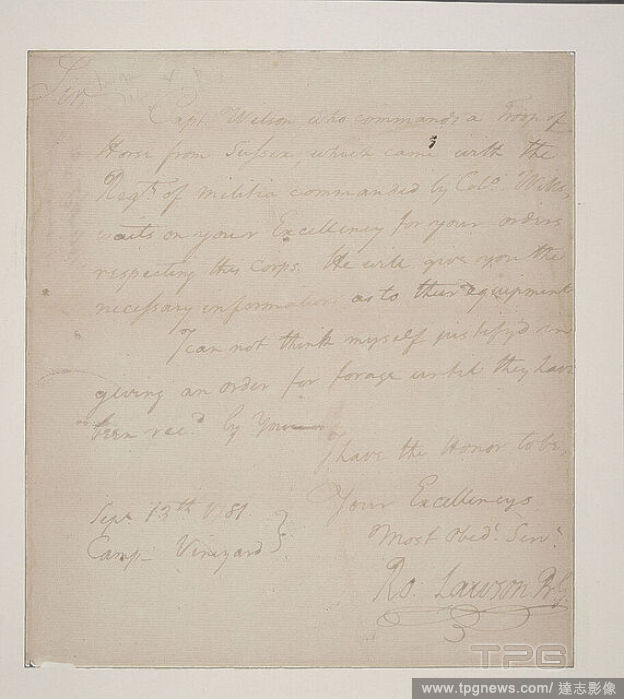 Sir,
Capt. Wilson who commands a Troop of
Horse from Sussex, which came with the
Regt. of militia commanded by Colo. Wills,
waits on your Excellency for your orders
respecting this Corps. He will give you the
necessary information as to their equipment
I can not think myself justify'd in
giving an order for forage until they have
been rec'd by You
I have the Honor to be,
Your Excellencys
Most Obedt. Servt.
Ro. Lawson B.G.
Sepr. 13th 1781.
Camp Vineyard
TPG
www.tpgnews.com | 達志影像